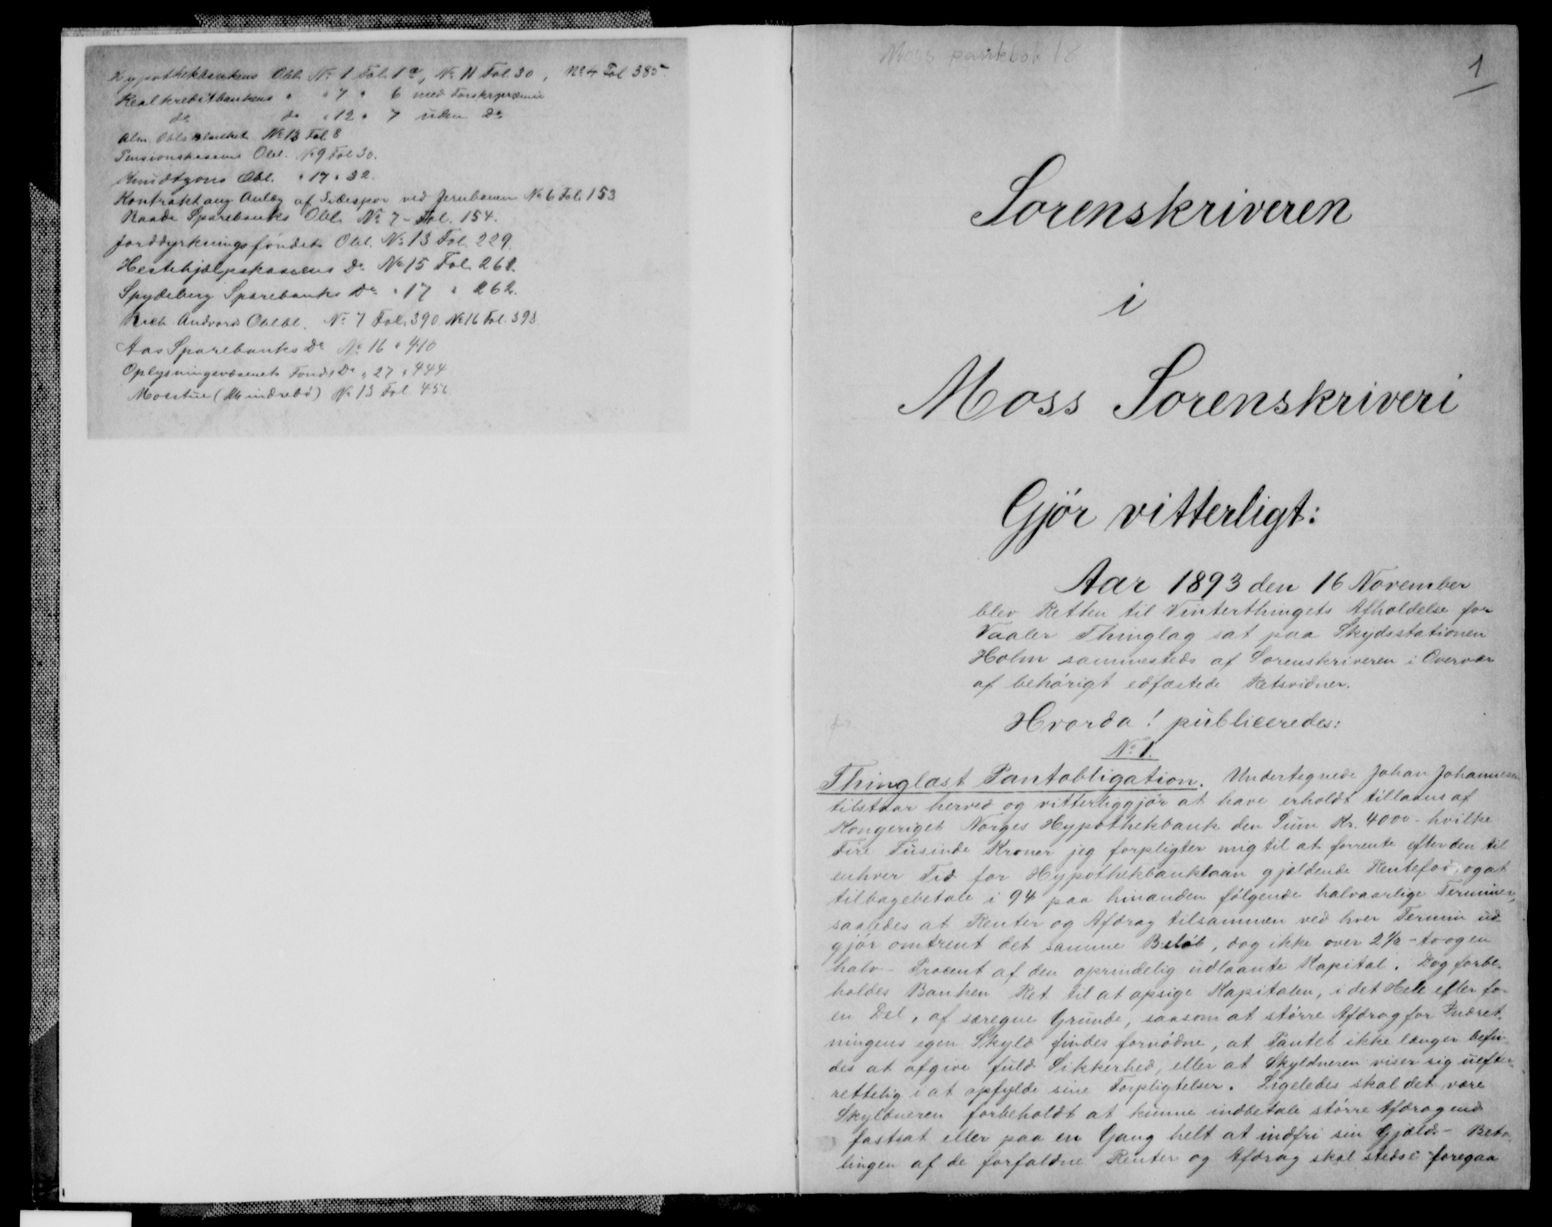 Hypothekbankens Obl. No 1 Fol. 1 , No 11 Fol 30, No 4 Fol 385
Realkreditbankens " " 7 " 6 med
do do " 12 " 7 uden Do
Alm. No 13 Fol 8
Pensionskassens Obl. No 9 Fol 30.
Knudtzons Obl. " 17 " 32.
Kontrakt ang Anlæg af Sidespor ved Jernbanen No 6 Fol. 153
Raade Sparebanks Obl. No 7 - Fol. 154.
Jorddyrkningsfondets Obl. No 13 Fol. 229.
Hestehjælpskassens Do No 15 Fol. 261.
Spydeberg Sparebanks Do " 17 " 262.
Andvord No 7 Fol. 390 No 16 Fol. 393
Aas Sparebanks Do No 16 " 410
Oplysningsvæsenets Fonds Do " 27 " 444
No 13 Fol. 456
Moss pantebok 18
1
Sorenskriveren
i
Moss Sorenskriveri
Gjör vitterligt:
Aar 1893 den 16 November
blev Retten til Vinterthingets Afholdelse for
Vaaler Thinglag sat paa Skydsstationen
Holm sammesteds af Sorenskriveren i Overvær
af behörigt edfæstede Retsvidner.
Hvorda! publiceredes:
No 1.
Thinglæst Pantobligation. Undertegnede Johan Johannesen
tilstaar herved og vitterliggjör at have erholdt tillaans af
Kongeriget Norges Hypothekbank den Sum Kr. 4000 - hvilke
Fire Tusinde Kroner jeg forpligter mig til at forrente efter den til
enhver Tid for Hypothekbanklaan gjældende Rentefod, og at
tilbagebetale i 94 paa hinanden følgende halvaarlige Terminer,
saaledes at Renter og Afdrag tilsammen ved hver Termin ud
gjör omtrent det samme Belöb, dog ikke over 2½ - to og en
halv - Procent af den oprindelig udlaante Kapital. Dog forbe-
holdes Banken Ret til at opsige Kapitalen, i det Hele eller for
en Del, af særegne Grunde, saasom at større Afdrag for Indret-
ningens egen Skyld findes fornødne, at Pantet ikke længer befin-
des at afgive fuld Sikkerhed, eller at Skyldneren viser sig uefter-
rettelig i at opfylde sine Forpligtelser. Ligeledes skal det være
Skyldneren forbeholdt at kunne indbetale större Afdrag end
fastsat eller paa en Gang helt at indfri sin Gjæld. - Beta-
lingen af de forfaldne Renter og Afdrag skal stedse foregaa